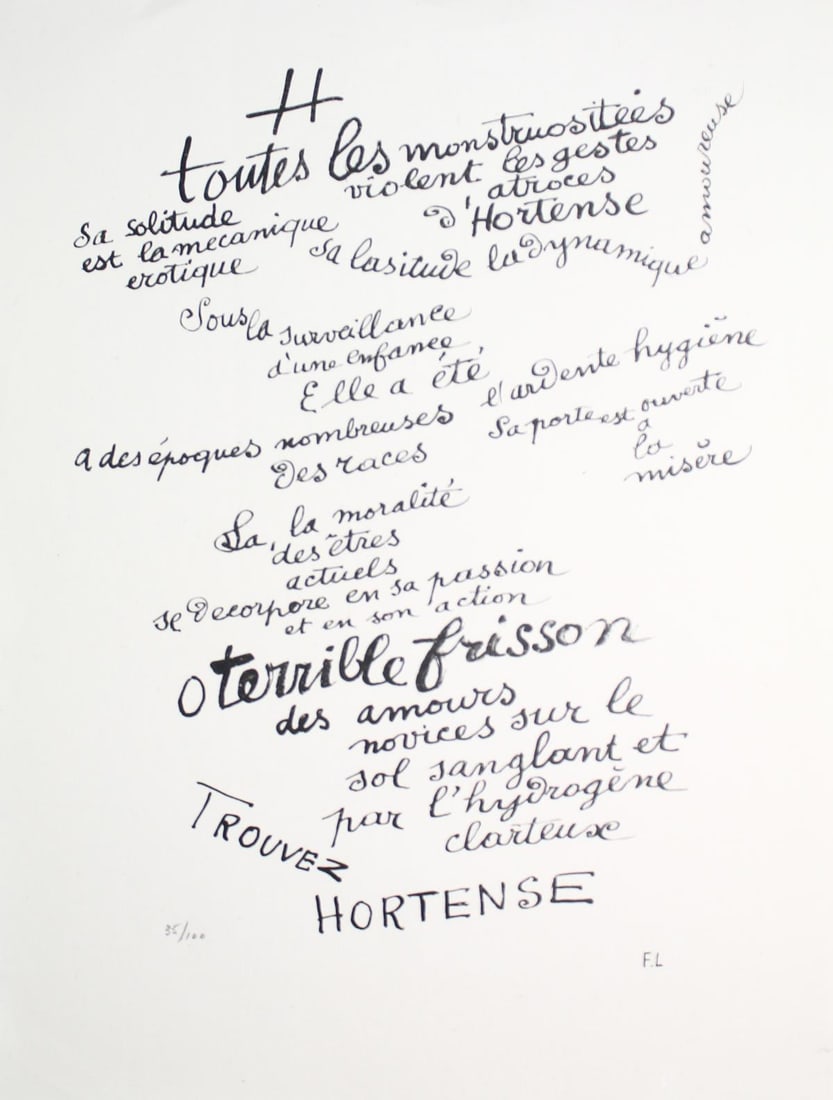 H
toutes les monstruositées
violent les gestes
atroces
d'Hortense
Sa solitude
est la mecanique
erotique
sa lasitude la dynamique
amoureuse
Sous la surveillance
d'une enfance
Elle a été,
a des époques nombreuses
des races
l'ardente hygiène
Sa porte est ouverte
a
la
misère
La, la moralité
des êtres
actuels
se decorpore en sa passion
et en son action
O terrible frisson
des amours
novices sur le
sol sanglant et
par l'hydrogène
clarteuse
TROUVEZ
HORTENSE
35/100
F.L